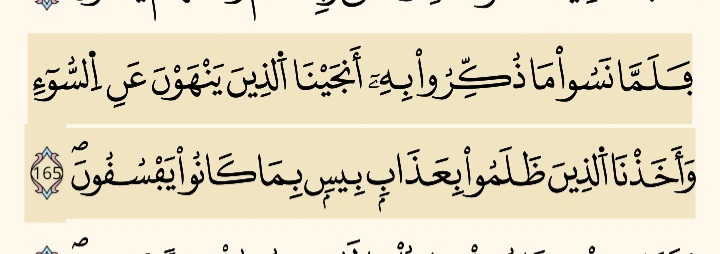 فَلَمَّا نَسُواْ مَا ذُكِّرُواْ بِهِۦٓ أَنجَيْنَا اَ۬لذِينَ يَنْهَوْنَ عَنِ اِ۬لسُّوٓءِ
وَأَخَذْنَا اَ۬لذِينَ ظَلَمُواْ بِعَذَابِۢ بِيسِۢ بِمَا كَانُواْ يَفْسُقُونَۖ 165